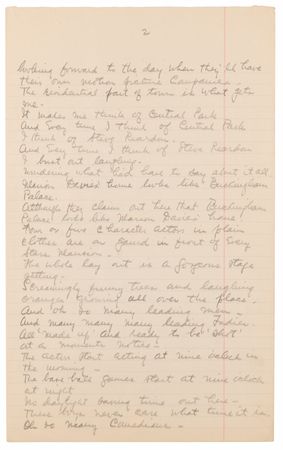 2
looking forward to the day when they'll have
their own motion picture Companies
The residential part of town is what gets
me.
It makes me think of Central Park
And every time I think of Central Park
I think of Steve Reardon.
And every time I think of Steve Reardon
I bust out laughing.
Wondering what he'd have to say about it all.
Marion Davies home looks like Buckingham
Palace.
Although they claim out here that Buckingham
Palace looks like Marion Davies' home.
Four or five character actors in plain
clothes are on guard in front of every
Stars Mansion.
The whole lay out is a gorgeous stage
setting.
Screamingly funny trees and laughing
oranges growing all over the place.
And oh so many leading men.
And many many many leading ladies.
All 'made up' and ready to be 'shot'
at a moments notice.
The actors start acting at nine oclock in
the morning.
The base ball games start at nine oclock
at night
No daylight saving time out here.
These boys never care what time it is.
Oh so many Comedians.